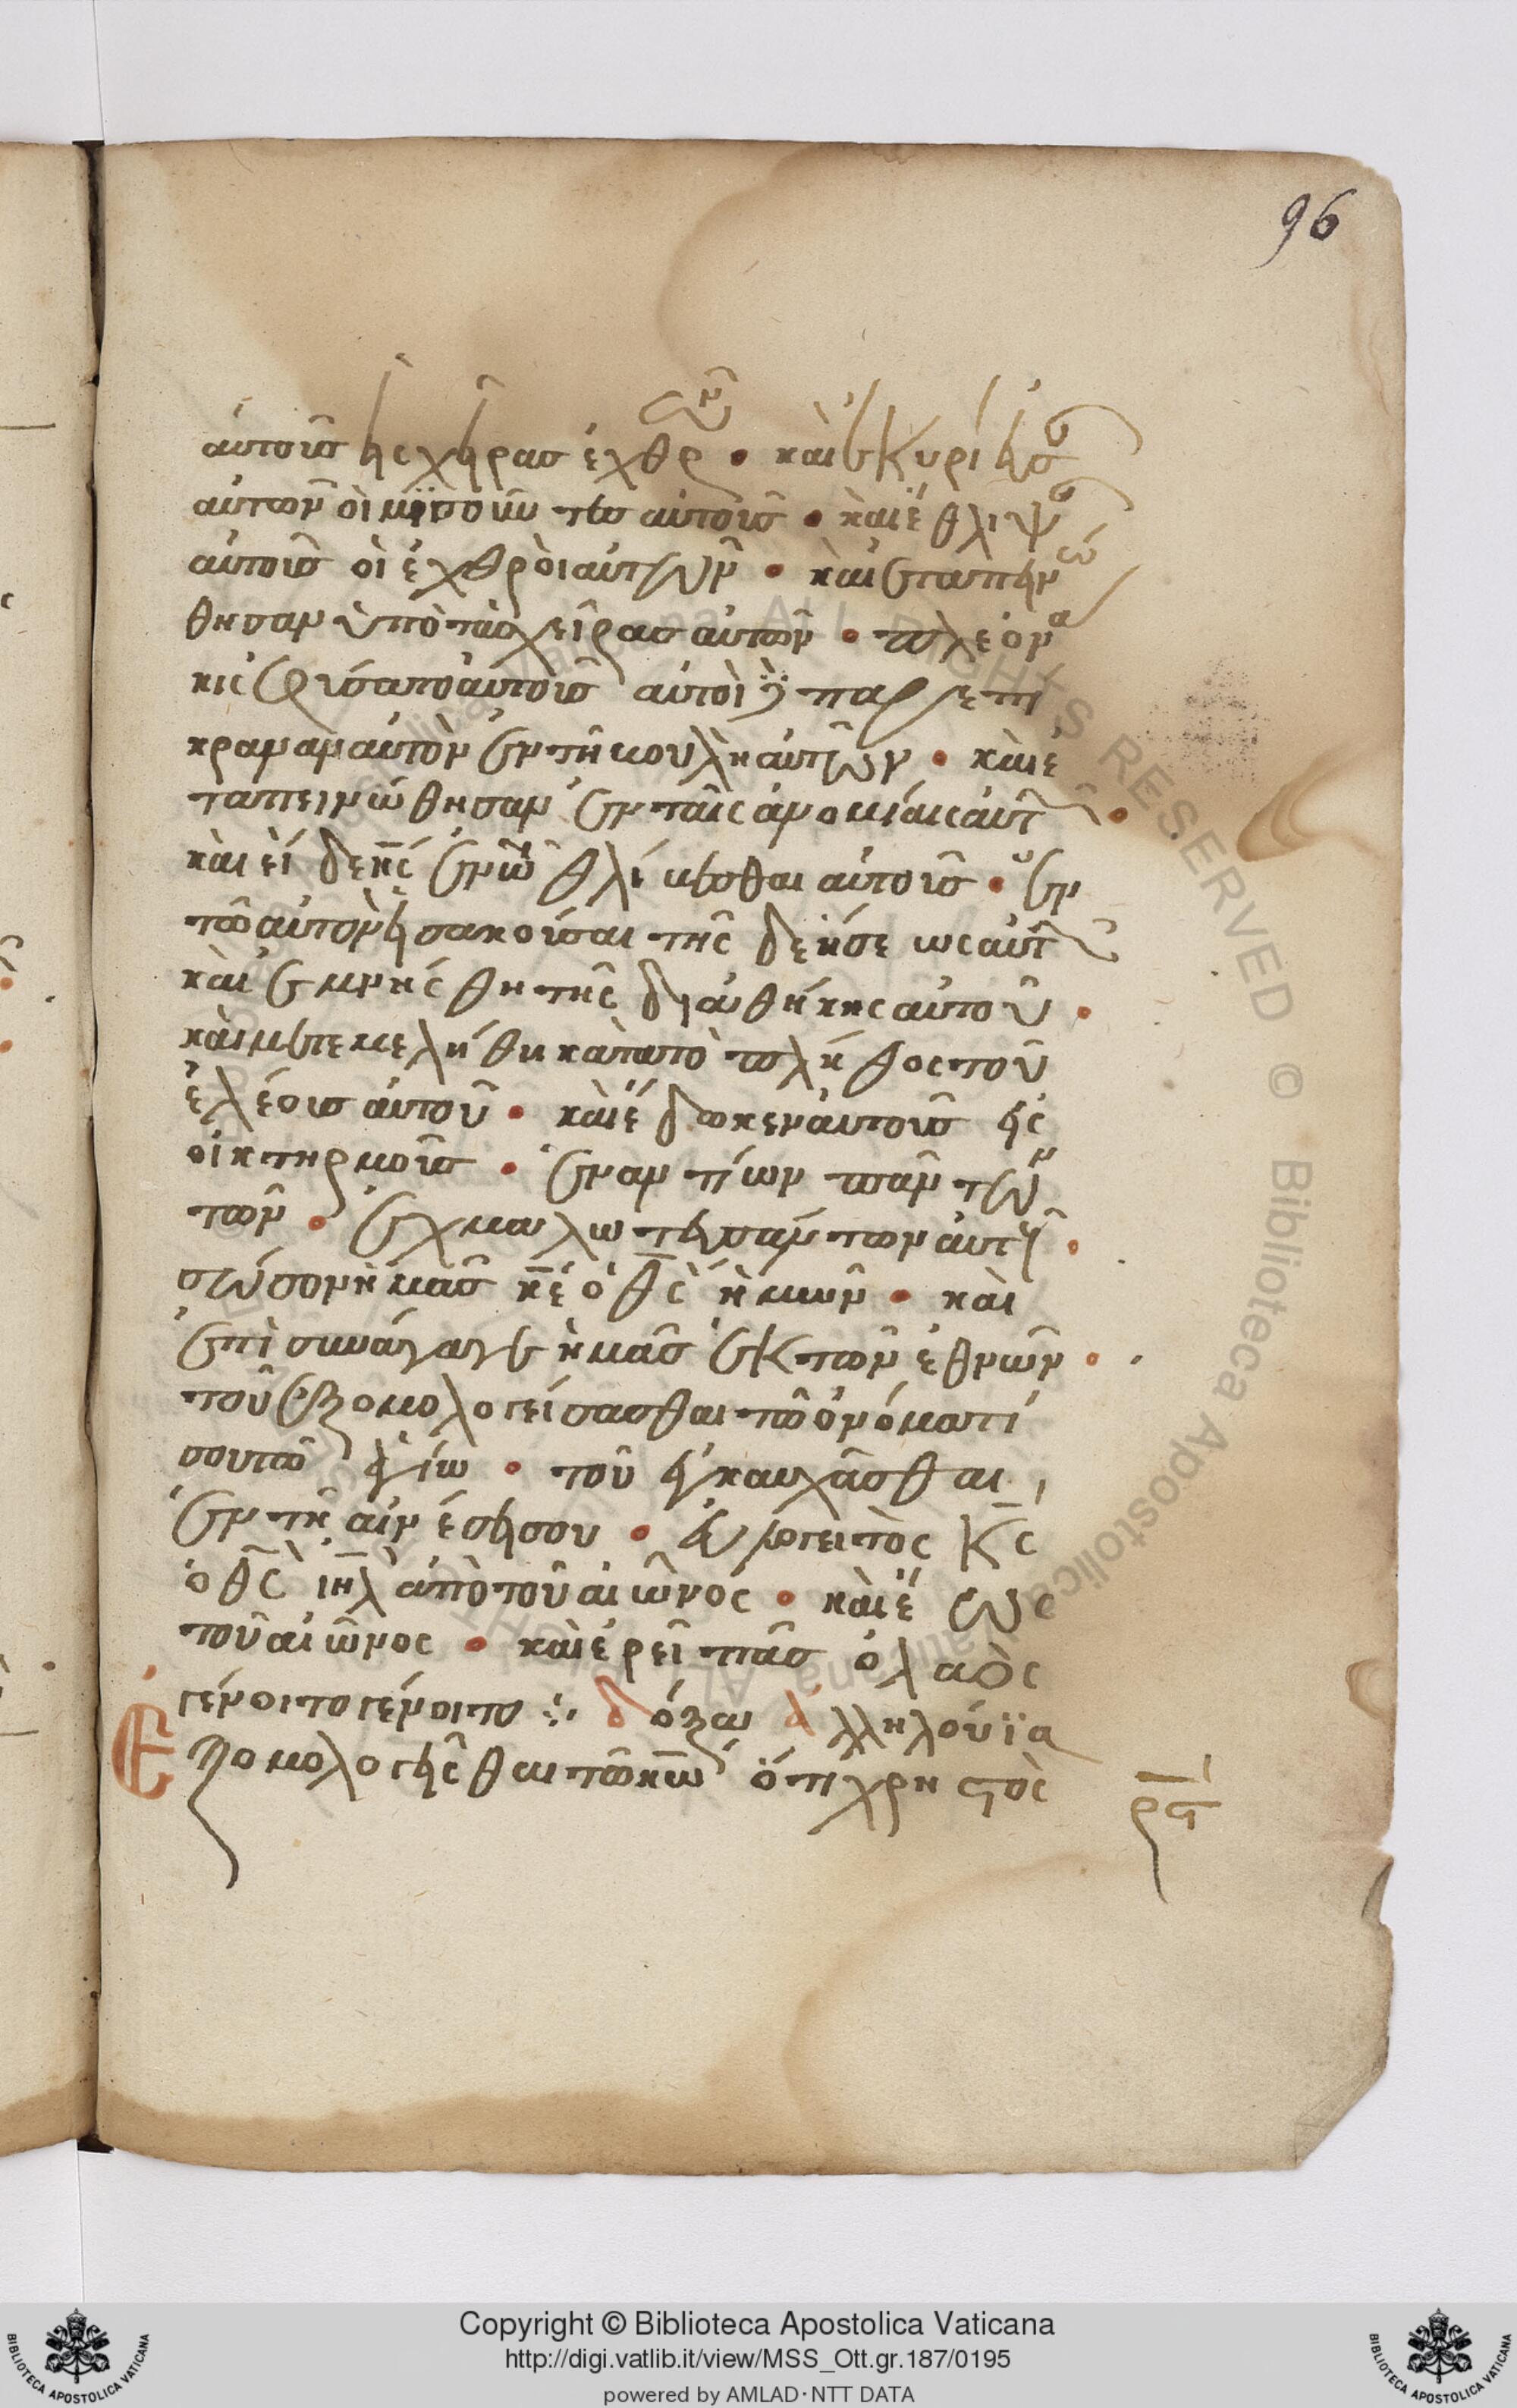 96
αὐτοὺσ εἰς χεῖρασ ἐχθρῶν · καὶ ἐκυρίευσ
αὐτῶν οἱ μϊσοῦντεσ αὐτοὺσ · καὶ ἔθλιψ
αὐτοὺσ οἱ ἐχθροὶ αὐτῶν · καὶ ἐταπεινώ
θησαν ὑπὸ τὰσ χεῖρασ αὐτῶν · πλεονά
κις ἐρύσατο αὐτοὺσ αὐτοὶ δὲ παρεπί
κραναν αὐτὸν ἐν τῆ βουλῆ αὐτῶν · καὶ ἐ
ταπεινώθησαν ἐν ταῖς ἀνομίαις αὐτῶν ·
καὶ εἶδεν κς ἐν τῶ θλίβεσθαι αὐτοὺσ · ἐν
τῶ αὐτὸν εἰσακοῦσαι τῆς δεήσεως αὐτῶν
καὶ ἐμνήσθη τῆς διαθήκης αὐτοῦ ·
καὶ μετεμελήθη κατὰ τὸ πλῆθος τοῦ
ἐλέουσ αὐτοῦ · καὶ ἔδωκεν αὐτοὺσ εἰς
οἰκτηρμοὺσ · ἐναντίων πάντων
τῶν · ἐχμαλωτευσάντων αὐτούς ·
σῶσον ἡμᾶσ κε ὁ θς ἡμῶν · καὶ
ἐπισυνάγαγε ἡμᾶσ ἐκ τῶν ἐθνῶν ·
τοῦ ἐξομολογείσασθαι τῶ ὀνόματί
σου τῶ ἁγίω · τοῦ ἐγκαυχᾶσθαι
ἐν τῆ αἰνέσει σου · εὐλογειτὸς Κς
ὁ θς ιηλ ἀπὸ τοῦ αἰῶνός · καὶ ἕως
τοῦ αἰῶνος · καὶ ἐρεῖ πᾶσ ὁ λαὸς
γένοιτο γένοιτο : δόξα ἀλληλούϊα
Ἐξομολογεῖσθαι τῶ κω ὅτι χρηστὸς
ρς
Copyright © Biblioteca Apostolica Vaticana
http://digi.vatlib.it/view/MSS_Ott.gr.187/0195
powered by AMLAD·NTT DATA